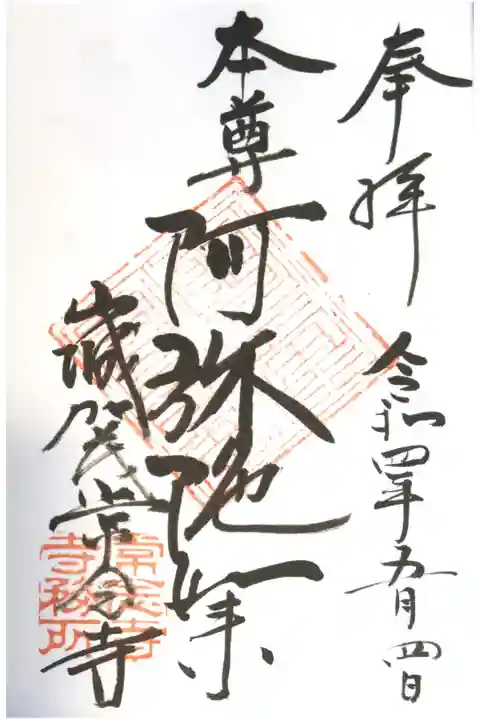 奉拝 令和四年五月四日
本尊 阿弥陀如来
山城賀茂 常念寺
常念寺
寺務所